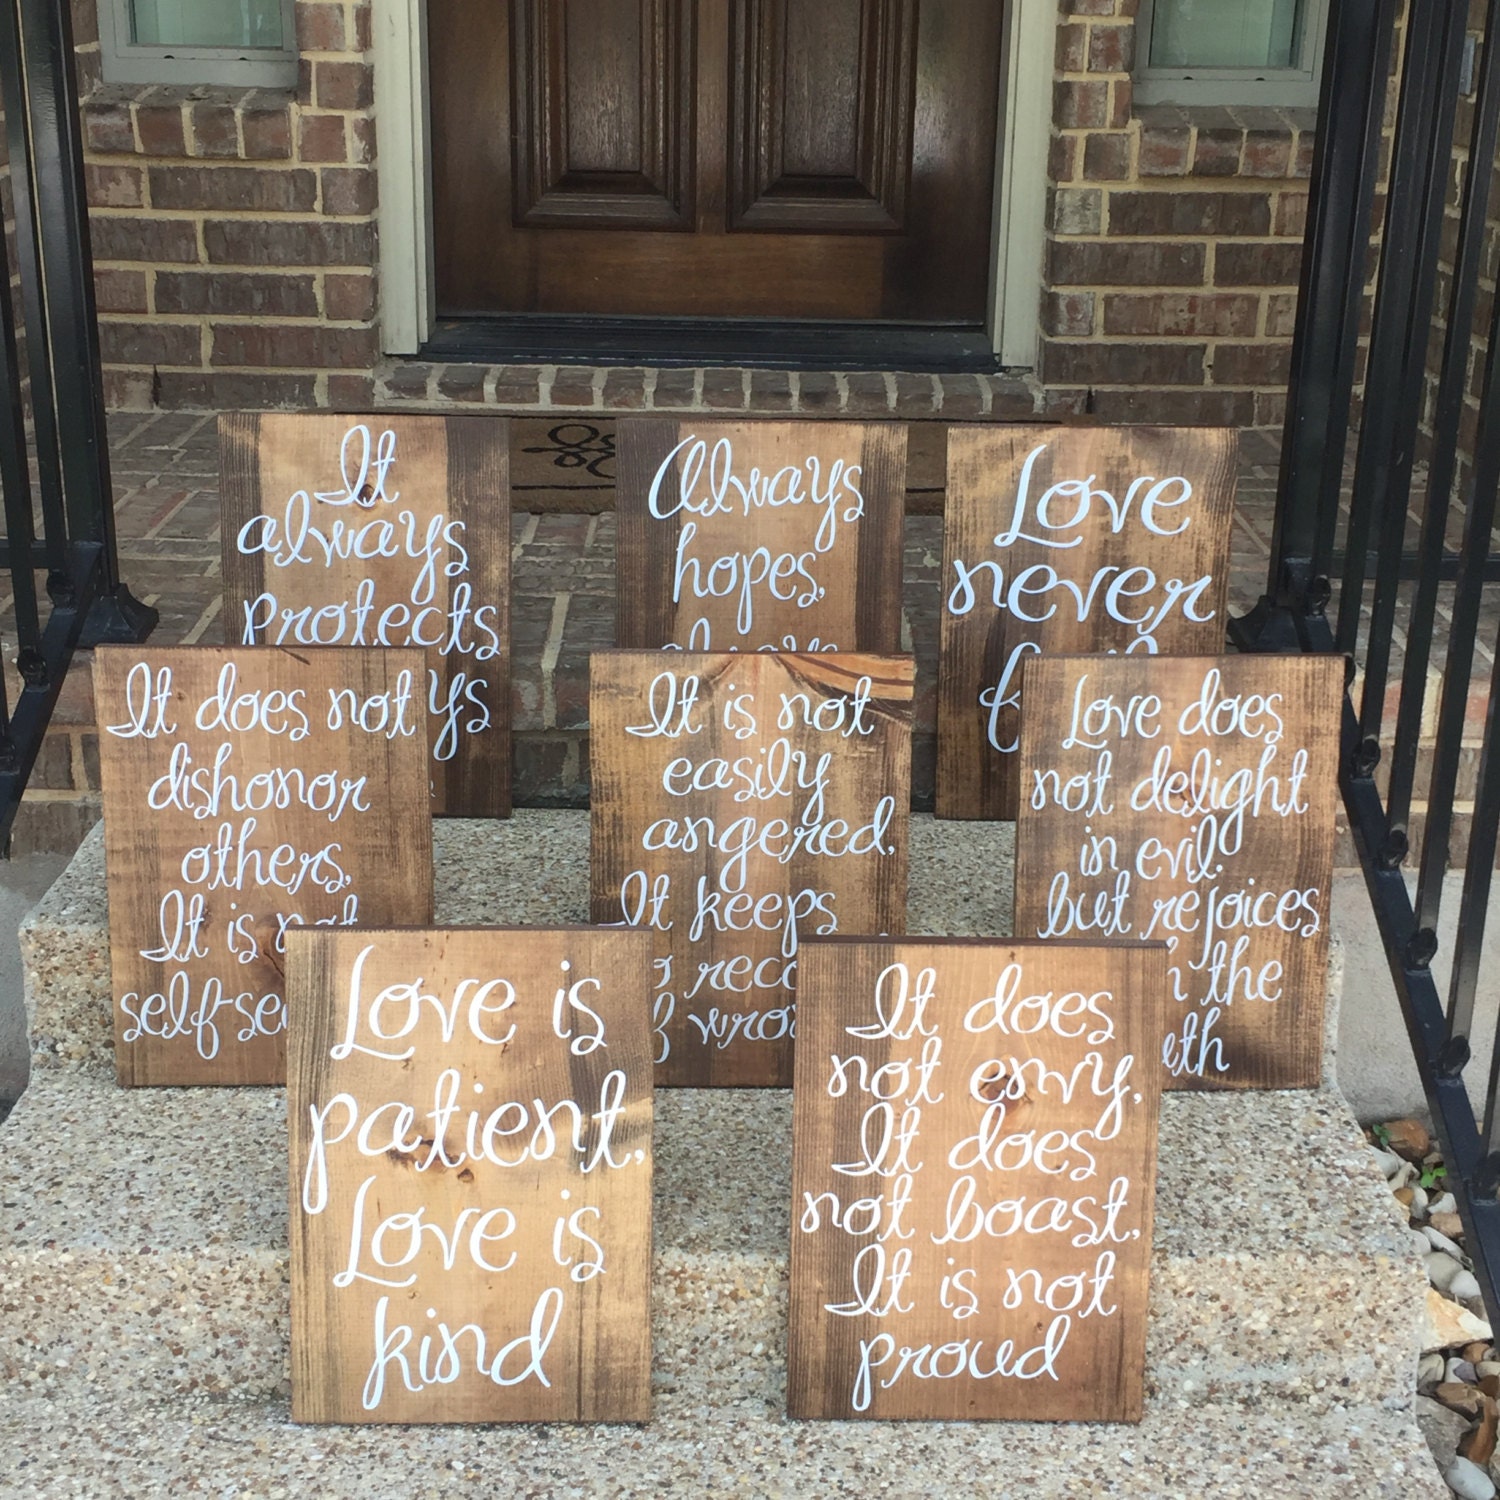 It
always
protects
Always
hopes,
always
Love
never
It does not
dishonor
others,
It is not
It is not
easily
angered,
It keeps
wro
Love does
not delight
in evil.
but rejoices
the
Love is
patient,
Love is
kind
It does
not envy,
It does
not boast,
It is not
proud